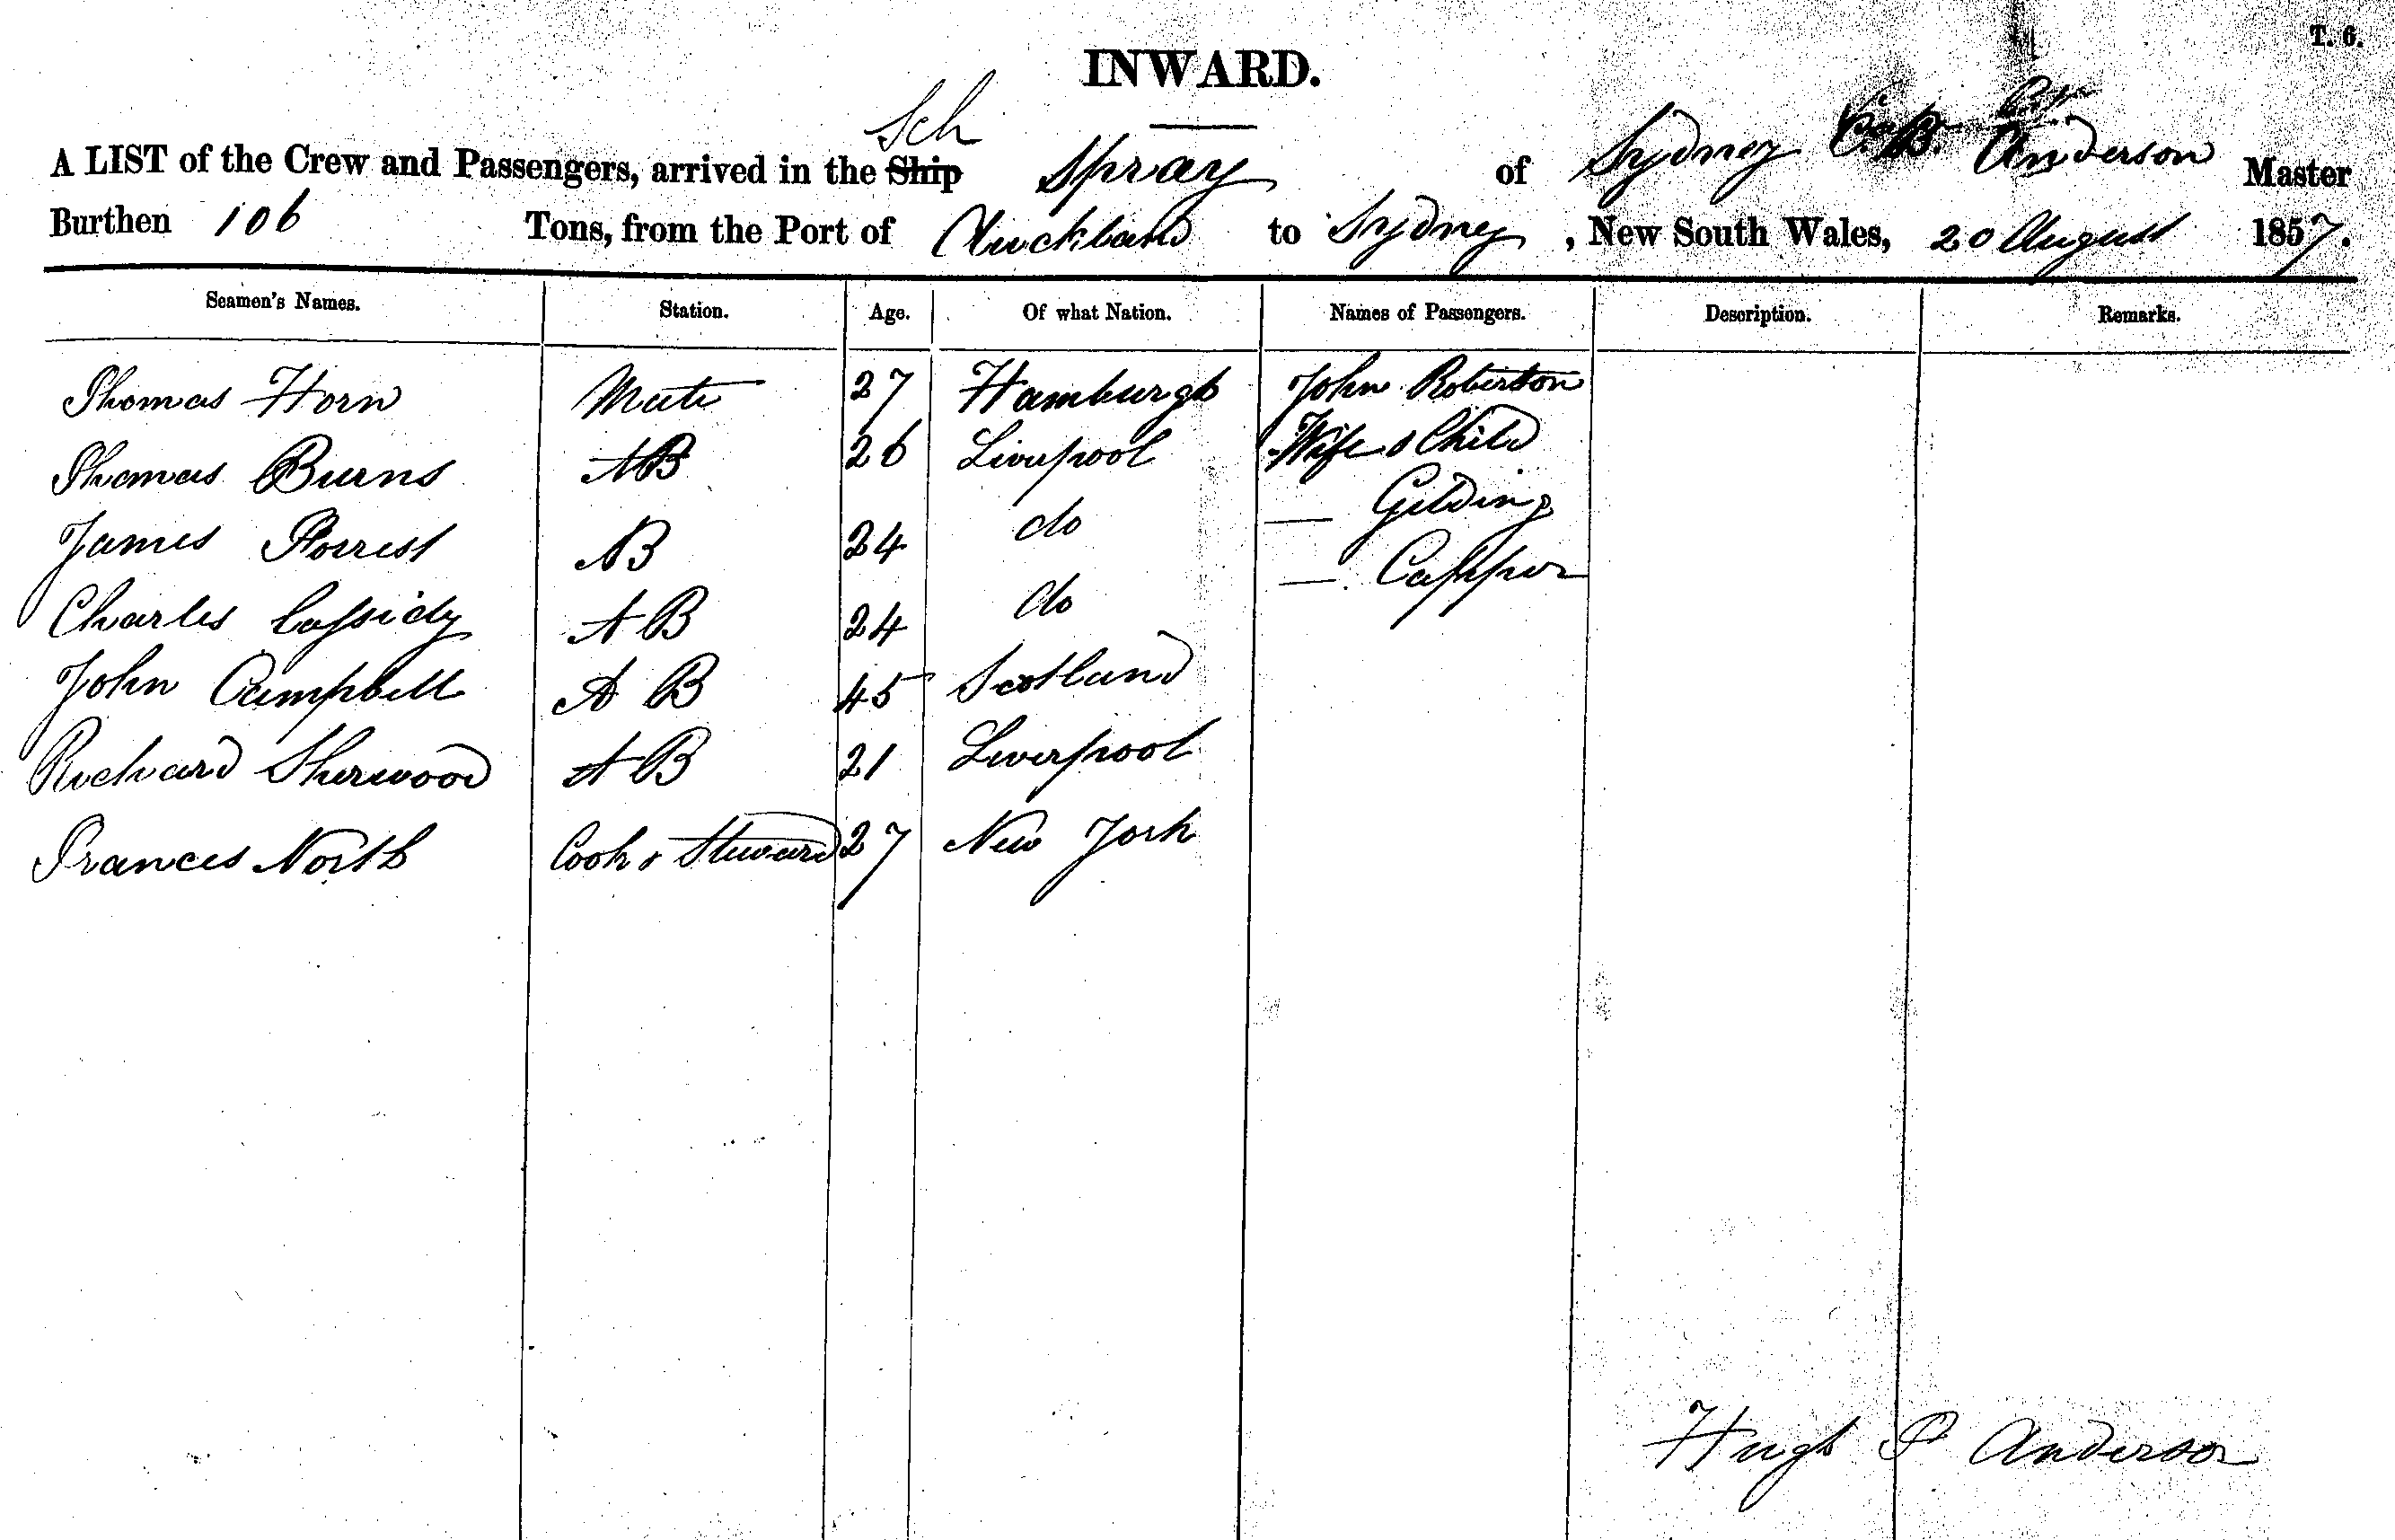 T. 6.
INWARD.
Sch
A LIST of the Crew and Passengers, arrived in the Ship Spray of Sydney Anderson Master
Burthen 106 Tons, from the Port of Auckland to Sydney, New South Wales, 20 August 1857.
Seamen's Names. Station. Age. Of what Nation. Names of Passengers. Description. Remarks.
Thomas Horn Mate 27 Hamburgh John Robertson
Thomas Burns AB 26 Liverpool Wife & Child
James Forrest AB 24 do — Gilding
Charles Cassidy AB 24 do — Capper
John Campbell AB 45 Scotland
Richard Sherwood AB 21 Liverpool
Frances North Cook & Steward 27 New York
Hugh Anderson